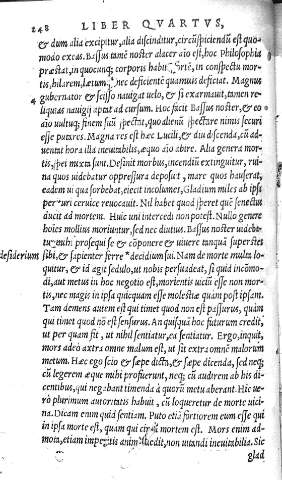 248 LIBER QVARTVS,
& dum alia excipitur, alia discinditur, circũspiciendũ est quo-
modo exeas. Bassus tamẽ noster alacer aĩo est, hoc Philosophia
præstat, in quocunq; corporis habitu fortẽ, in conspectu mor-
tis, hilarem, lætumq; nec deficientẽ quamuis deficiat. Magnus
gubernator & scisso nauigat uelo, & si exarmauit, tamen re-
liquias nauigij aptat ad cursum. Hoc facit Bassus noster, & eo
aĩo uultuq; finem suũ spectat, quo alienũ spectare nimis securi
esse putares. Magna res est hæc Lucili, & diu discenda, cũ ad-
uentat hora illa ineuitabilis, æquo aĩo abire. Alia genera mor-
tis, spei mixta sunt. Desinit morbus, incendiũ extinguitur, rui-
na quos uidebatur oppressura deposuit, mare quos hauserat,
eadem ui qua sorbebat, eiecit incolumes, Gladium miles ab ipsa
perituri ceruice reuocauit. Nil habet quod speret quẽ senectus
ducit ad mortem. Huic uni intercedi non potest. Nullo genere
hoĩes mollius moriuntur, sed nec diutius. Bassus noster uideba-
tur mihi prosequi se & cõponere & uiuere tanquã superstes
desiderium sibi, & sapienter ferre desiderium sui. Nam de morte multa lo-
quitur, & id agit sedulo, ut nobis persuadeat, si quid incõmo-
di, aut metus in hoc negotio est, morientis uitiũ esse non mor-
tis, nec magis in ipsa quicquam esse molestiæ quàm post ipsam.
Tam demens autem est qui timet quod non est passurus, quàm
qui timet quod nõ est sensurus. An quisquã hoc futurum credit,
ut per quam nil sentiatur, ea sentiatur. Ergo, inquit,
mors adeo extra omne malum est, ut sit extra omnẽ malorum
metum. Hæc ego scio & sæpe dicta, & sæpe dicenda, sed neq;
cũ legerem æque mihi profuerunt, neq; cũ audirem ab his di-
centibus, qui negabant timenda à quorũ metu aberant. Hic ue-
rò plurimum autoritatis habuit, cũ loqueretur de morte uici-
na. Dicam enim quid sentiam. Puto eñ fortiorem eum esse qui
in ipsa morte est, quàm qui circa mortem est. Mors enim ad-
mota, etiam imperitis animũ dedit, non uitandi ineuitabilia. Sic
glad